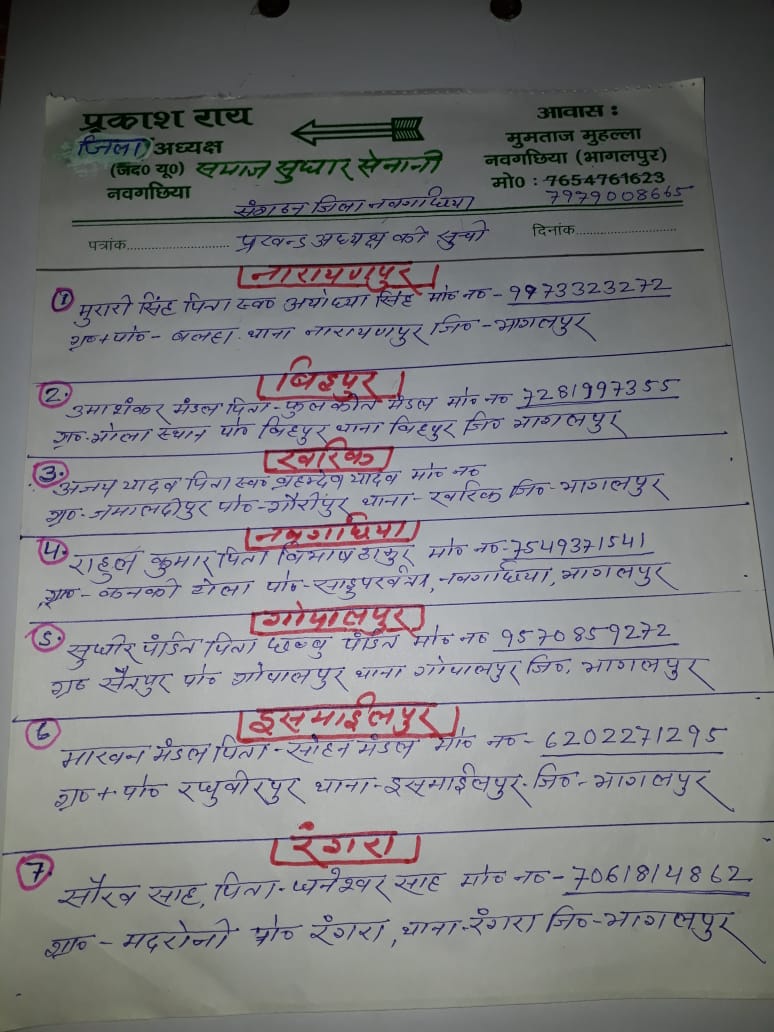 प्रकाश राय
जिला अध्यक्ष
(जद० यू०) समाज सुधार सेनानी
नवगछिया
आवास :
मुमताज मुहल्ला
नवगछिया (भागलपुर)
मो० : 7654761623
7979008665
संगठन जिला नवगछिया
पत्रांक.............................. प्रखन्ड अध्यक्ष की सुची दिनांक....................
नारायणपुर
1 मुरारी सिंह पिता स्व० अयोध्या सिंह मो० न० - 9973323272
ग्रा०+पो० - बलहा थाना नारायणपुर जि० - भागलपुर
बिहपुर
2. उमाशंकर मंडल पिता - फुल मंडल मो० न० 7281997355
ग्रा० - गोला स्थान पो० बिहपुर थाना बिहपुर जि० भागलपुर
खरिक
3. अजय यादव पिता स्व० यादव मो० न०
ग्रा० - जमालदीपुर पो० - गौरीपुर थाना - खरिक जि० - भागलपुर
नवगछिया
4. राहुल कुमार पिता विभाष ठाकुर मो० न० - 7549371541
ग्रा० - कनकी टोला पो० - साहु परवत्ता, नवगछिया, भागलपुर
गोपालपुर
5. सुधीर पंडित पिता छब्बु पंडित मो० न० 9570859272
ग्रा० सैदपुर पो० गोपालपुर थाना गोपालपुर जि०. भागलपुर
इसमाईलपुर
6 माखन मंडल पिता - सोहन मंडल मो० न० - 6202271295
ग्रा० + पो० रघुवीरपुर थाना - इसमाईलपुर - जि० - भागलपुर
रंगरा
7. सौरव साह, पिता - धनेश्वर साह मो० न० - 7061814862
ग्रा० - मदरौनी पो० रंगरा, थाना - रंगरा जि० - भागलपुर